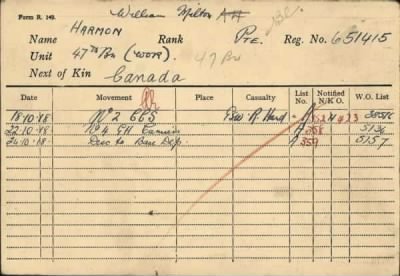 Form R. 149.
William Milton
Name HARMON Rank Pte. Reg. No. 651415
Unit 47th Bn (WOR) 47 Bn
Next of Kin Canada
Date Movement Place Casualty List No. Notified N/K O. W.O. List
18·10·18 No 2 CCS GSW R Hand
22·10·18 No 4 GH Camiers A 358 5136
26·10·18 Disc to Base Dep. A 359 5157